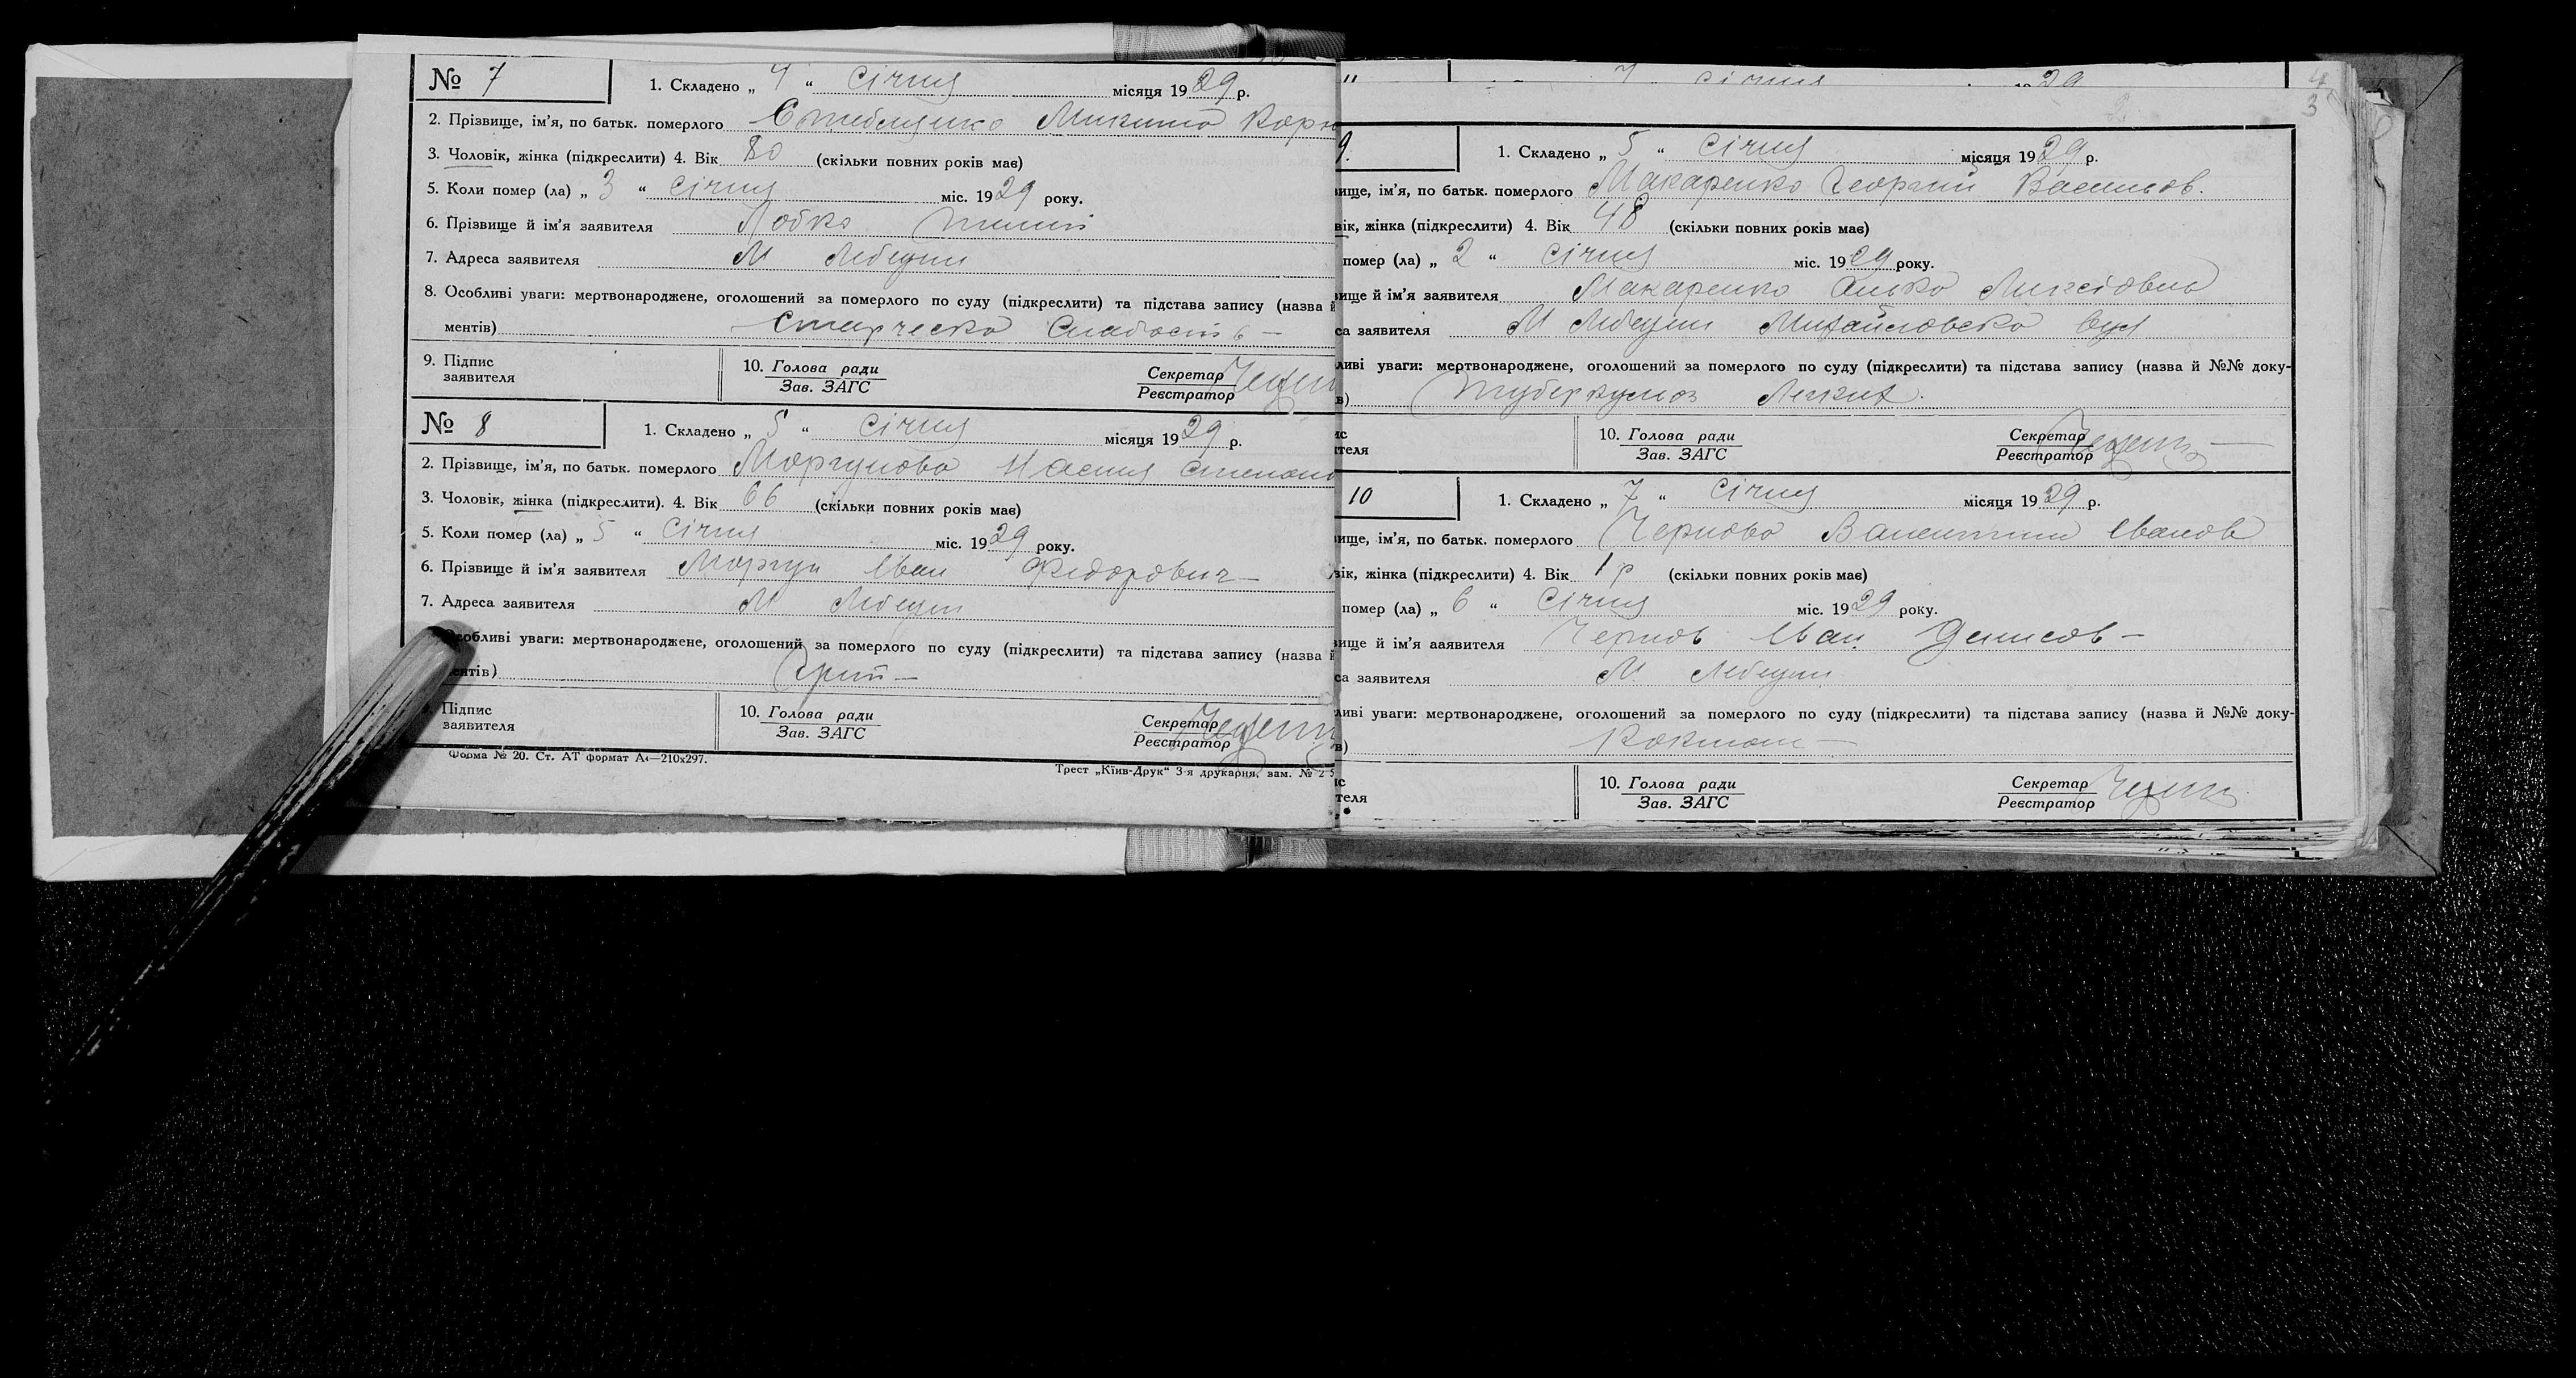 № 7
1. Складено „ 4 “ Січня місяця 1929 р.
2. Прізвище, ім’я, по батьк. померлого Микита Корн
3. Чоловік, жінка (підкреслити) 4. Вік 80 (скільки повних років має)
5. Коли помер (ла) „ 3 “ Січня міс. 1929 року.
6. Прізвище й ім’я заявителя Лобко
7. Адреса заявителя М Лебедин
8. Особливі уваги: мертвонароджене, оголошений за померлого по суду (підкреслити) та підстава запису (назва й
ментів) Старческа Слабость —
9. Підпис
заявителя
10. Голова ради
Зав. ЗАГС
Секретар
Реєстратор
№ 8
1. Складено „ 5 “ Січня місяця 1929 р.
2. Прізвище, ім’я, по батьк. померлого Моргунова Настя Степано
3. Чоловік, жінка (підкреслити). 4. Вік 66 (скільки повних років має)
5. Коли помер (ла) „ 5 “ Січня міс. 1929 року.
6. Прізвище й ім’я заявителя Моргун Іван Федорович —
7. Адреса заявителя М Лебедин
собливі уваги: мертвонароджене, оголошений за померлого по суду (підкреслити) та підстава запису (назва й
ентів) Грип —
Підпис
заявителя
10. Голова ради
Зав. ЗАГС
Секретар
Реєстратор
Форма № 20. Ст. АТ формат А4—210х297.
Трест „Київ-Друк“ 3-я друкарня, зам. № 25
„ 7 січня 29
4
3
9.
1. Складено „ 5 “ Січня місяця 1929 р.
ище, ім’я, по батьк. померлого Макаренко Георгий Васильов.
вік, жінка (підкреслити) 4. Вік 48 (скільки повних років має)
помер (ла) „ 2 “ Січня міс. 1929 року.
ище й ім’я заявителя Макаренко
са заявителя М Лебедин Михайловска вул
ливі уваги: мертвонароджене, оголошений за померлого по суду (підкреслити) та підстава запису (назва й №№ доку-
в) Туберкульоз Легких.
ис
теля
10. Голова ради
Зав. ЗАГС
Секретар
Реєстратор
10
1. Складено „ 7 “ Січня місяця 1929 р.
ище, ім’я, по батьк. померлого Чернова Валентина Іванов
вік, жінка (підкреслити) 4. Вік 1 р (скільки повних років має)
помер (ла) „ 6 “ Січня міс. 1929 року.
ище й ім’я ааявителя Чернов Іван Денисов —
са заявителя М Лебедин
ливі уваги: мертвонароджене, оголошений за померлого по суду (підкреслити) та підстава запису (назва й №№ доку-
в) Коклюш —
ис
теля
10. Голова ради
Зав. ЗАГС
Секретар
Реєстратор